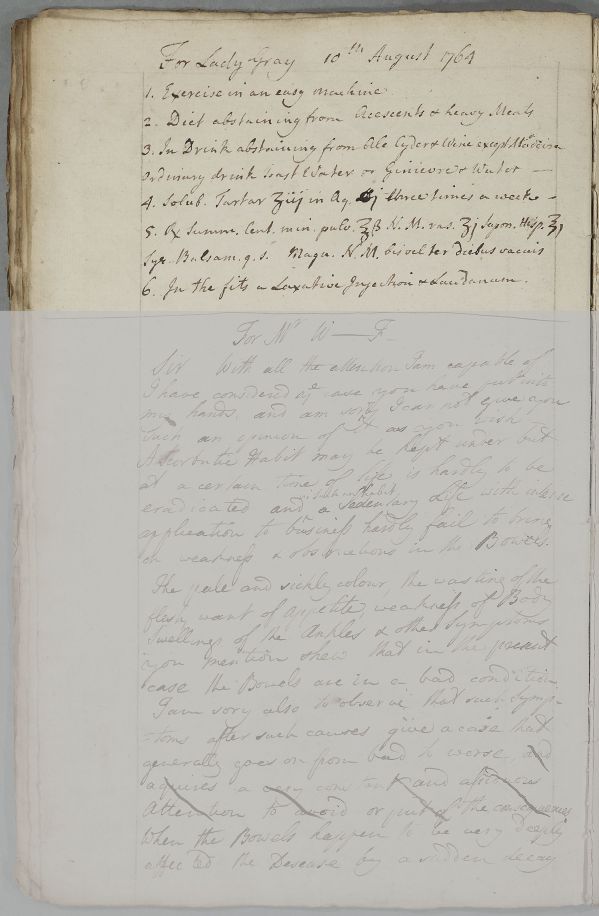 For Lady Gray 10th August 1764
1. Exercise in an easy machine
2. Diet abstaining from Acescents & heavy Meals
3. In Drink abstaining from Ale Cyder & Wine except Madeira
Ordinary drink toast Water or Ginievre & Water —
4. Solub. Tartar ʒiij in Aq. three times a week —
5. ℞ Summ. Cent. min. pulv. ℥ß N. M. ras. ʒj Sapon. Hisp. ʒj
Syr. Balsam. q. s. Magn. N. M. bis vel ter diebus vacuis
6. In the fits a Laxative Injection & Laudanum.
For Mr W — F —
Sir With all the attention I am capable of
I have considered ye case you have put into
my hands, and am sorry I can not give you
such an opinion of it as you wish —
A Scorbutic Habit may be kept under but
at a certain time of life is hardly to be
eradicated and with such an habit a Sedentary Life with intense
application to business hardly fail to bring
on weakness & obstructions in the Bowels.
The pale and sickly colour, the wasting of the
flesh, want of appetite weakness of Body
Swellings of the Ankles & other symptoms
you mention shew that in the present
case the Bowels are in a bad condition
I am sory also to observe that such Symp-
-toms after such causes give a case that
generally goes on from bad to worse, and
aquires a very constant and assiduous
Attention to avoid or put of the consequences
When the Bowels happen to be very deeply
affected the Desease by a sudden decay